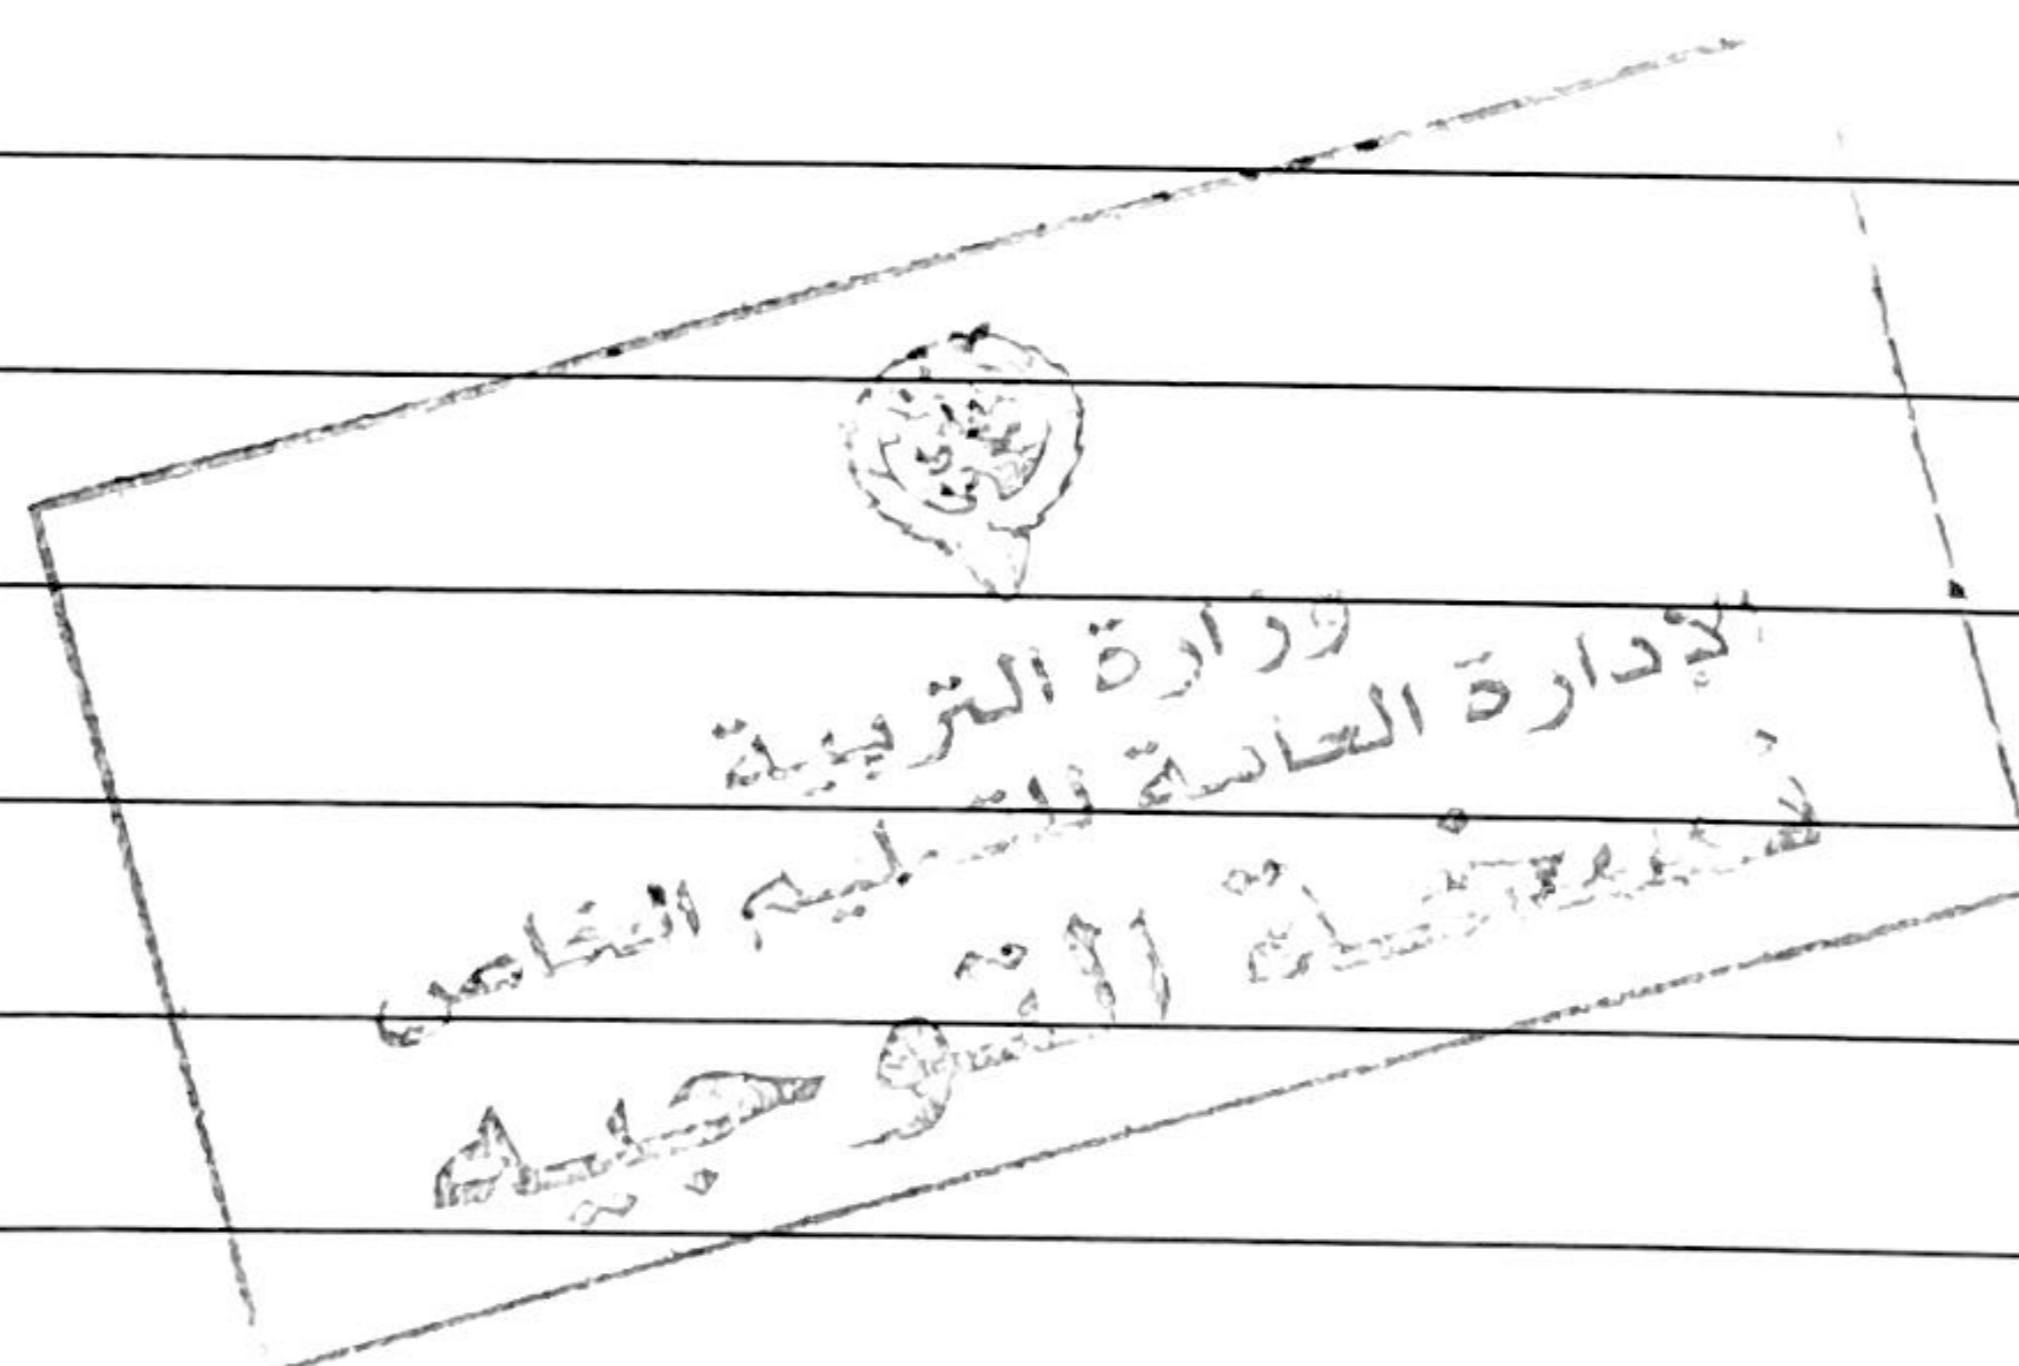 وزارة التربية
الإدارة العامة للتعليم الخاص
التوجيه